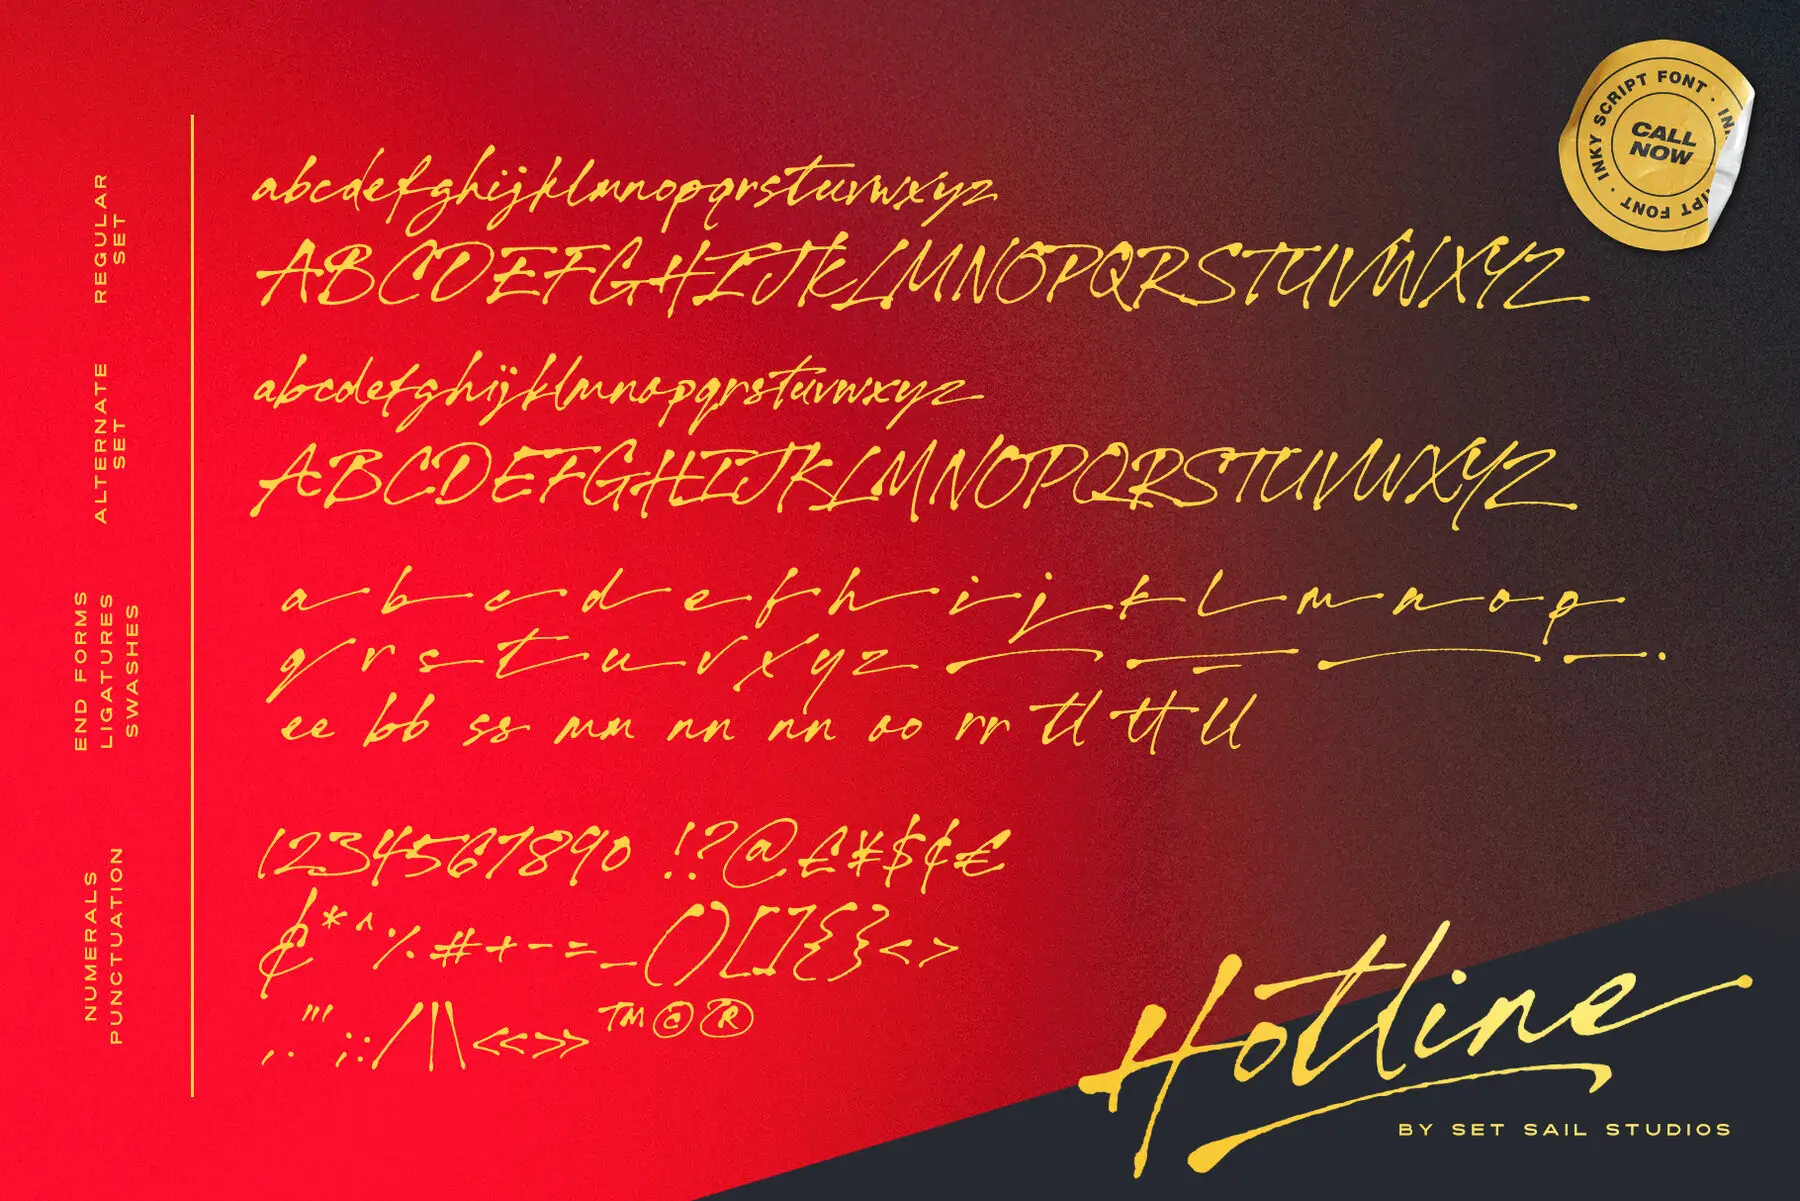 INKY SCRIPT FONT · INKY SCRIPT FONT ·
CALL
NOW
REGULAR
SET
abcdefghijklmnopqrstuvwxyz
ABCDEFGHIJKLMNOPQRSTUVWXYZ
ALTERNATE
SET
abcdefghijklmnopqrstuvwxyz
ABCDEFGHIJKLMNOPQRSTUVWXYZ
END FORMS
LIGATURES
SWASHES
a b c d e f h i j k l m n o p
q r s t u v x y z
ee bb ss mm nn nn oo rr tl tt ll
NUMERALS
PUNCTUATION
1234567890 !?@£¥$¢€
*^%#+-=_()[]{}<>
,. "' ;:/|\«»™©®
Hotline
BY SET SAIL STUDIOS